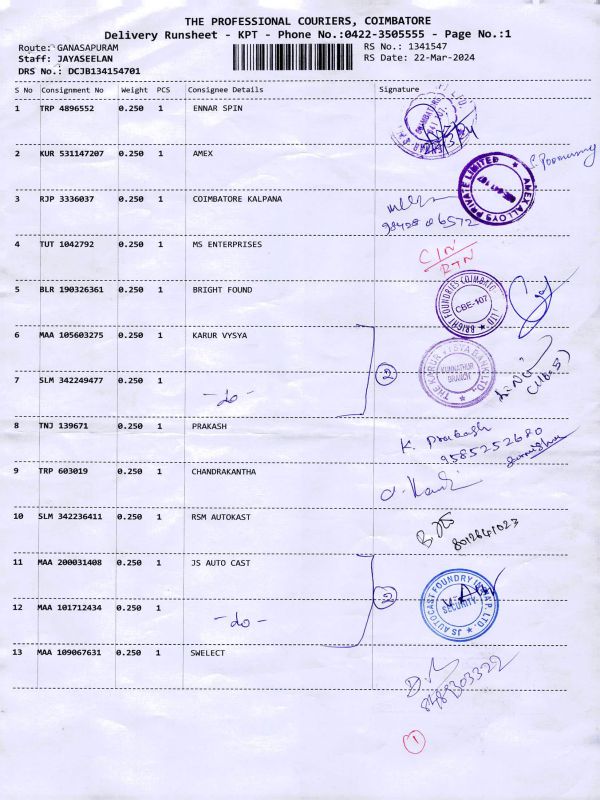 THE PROFESSIONAL COURIERS, COIMBATORE
Delivery Runsheet - KPT - Phone No.:0422-3505555 - Page No.:1
Route: GANASAPURAM RS No.: 1341547
Staff: JAYASEELAN RS Date: 22-Mar-2024
DRS No.: DCJB134154701
S No Consignment No Weight PCS Consignee Details Signature
1 TRP 4896552 0.250 1 ENNAR SPIN
2 KUR 531147207 0.250 1 AMEX
AMEX ALLOYS PRIVATE LIMITED
3 RJP 3336037 0.250 1 COIMBATORE KALPANA
4 TUT 1042792 0.250 1 MS ENTERPRISES
C/N
RTN
5 BLR 190326361 0.250 1 BRIGHT FOUND
BRIGHT FOUNDRIES COIMBATORE LTD
CBE-107
6 MAA 105603275 0.250 1 KARUR VYSYA
THE KARUR VYSYA BANK LTD.
KUNNATHUR
BRANCH
2
7 SLM 342249477 0.250 1 -do-
8 TNJ 139671 0.250 1 PRAKASH
K. Prakash
9585252680
9 TRP 603019 0.250 1 CHANDRAKANTHA
10 SLM 342236411 0.250 1 RSM AUTOKAST
8012641023
11 MAA 200031408 0.250 1 JS AUTO CAST
JS AUTOCAST FOUNDRY INDIA P. LTD.
SECURITY
2
12 MAA 101712434 0.250 1 -do-
13 MAA 109067631 0.250 1 SWELECT
8489303322
1